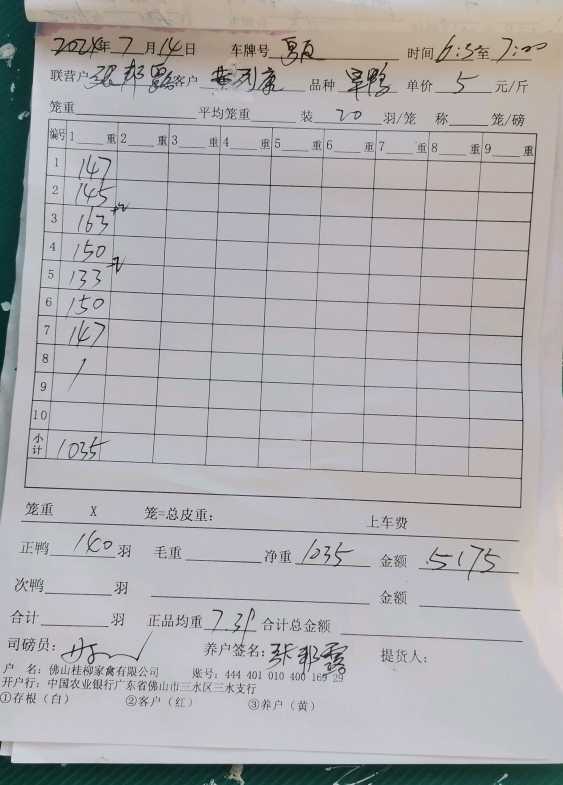 2024年7月14日 车牌号 时间6:5至7:00
联营户 张邦露 客户 品种 旱鸭 单价 5 元/斤
笼重 平均笼重 装 20 羽/笼 称 笼/磅
编号 1 重 2 重 3 重 4 重 5 重 6 重 7 重 8 重 9 重
1 147
2 145
3 163
4 150
5 133
6 150
7 147
8
9
10
小计 1035
笼重 X 笼=总皮重: 上车费
正鸭 140 羽 毛重 净重 1035 金额 5175
次鸭 羽 金额
合计 羽 正品均重 7.39 合计总金额
司磅员: 养户签名: 张邦露 提货人:
户 名: 佛山桂柳家禽有限公司 账号: 444 401 010 400 169 29
开户行: 中国农业银行广东省佛山市三水区三水支行
①存根（白） ②客户（红） ③养户（黄）